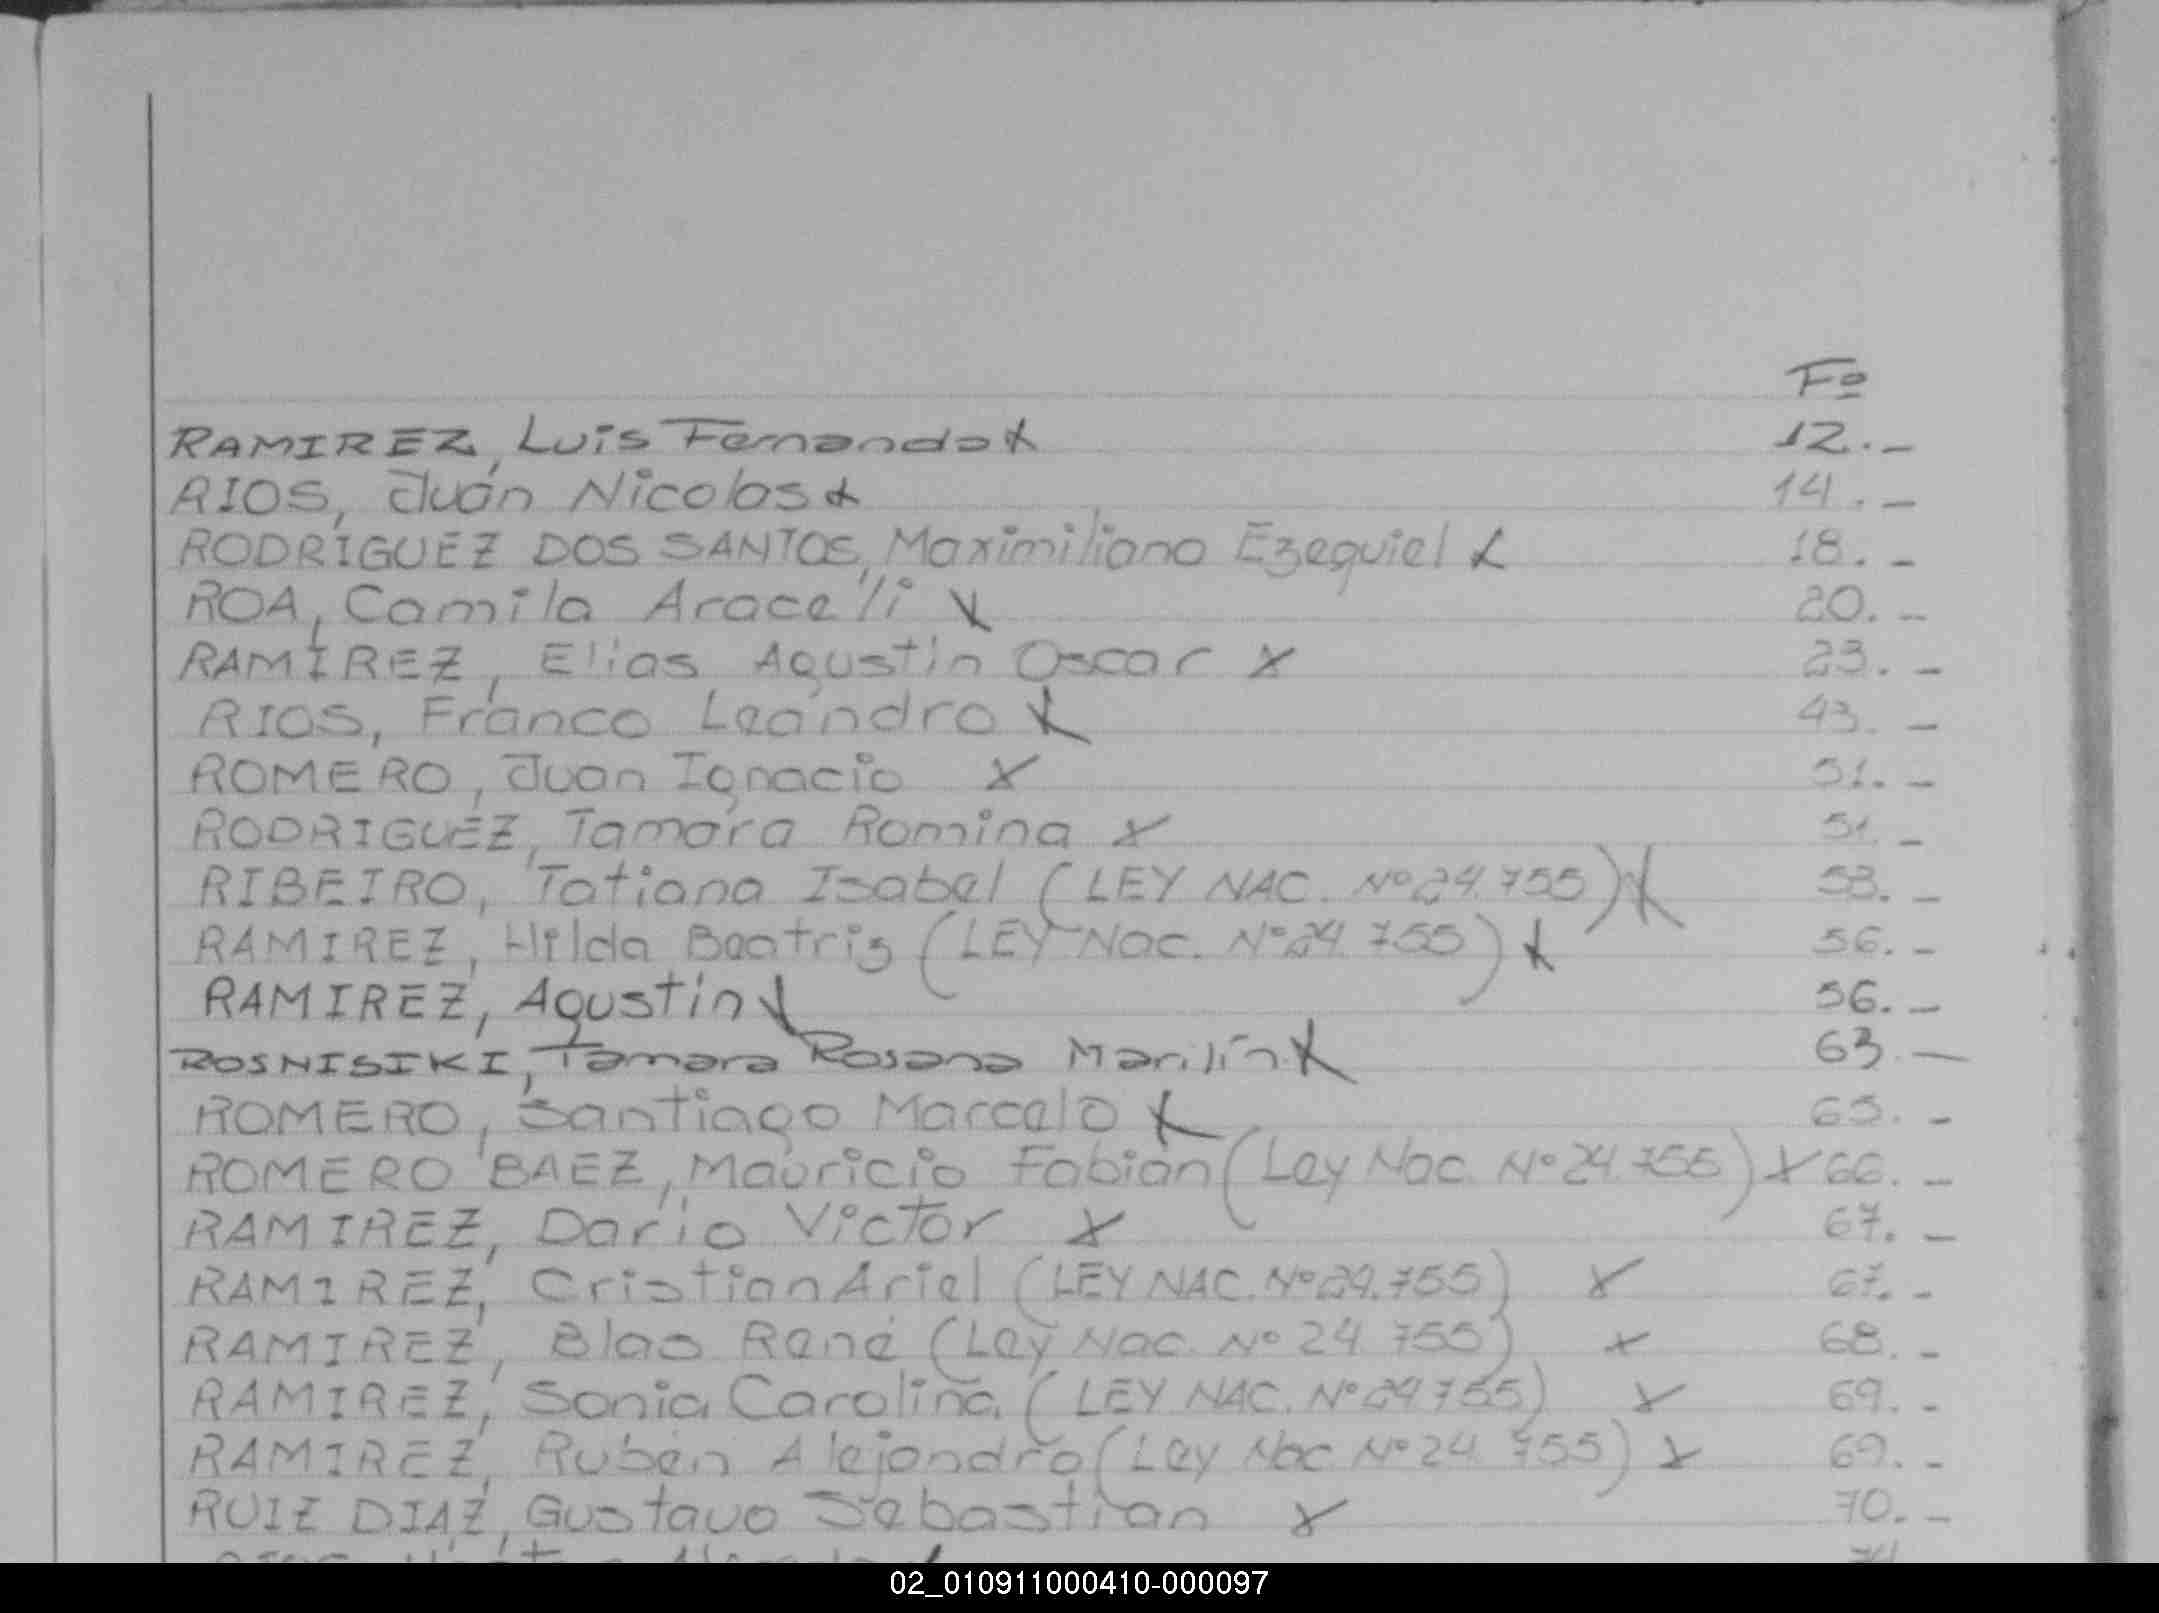 Fº
RAMIREZ, Luis Fernando x 12.-
RIOS, Juan Nicolas x 14.-
RODRIGUEZ DOS SANTOS, Maximiliano Ezequiel x 18.-
ROA, Camila Araceli x 20.-
RAMIREZ, Elias Agustin Oscar x 23.-
RIOS, Franco Leandro x 43.-
ROMERO, Juan Ignacio x 51.-
RODRIGUEZ, Tamara Romina x 51.-
RIBEIRO, Tatiana Isabel (LEY NAC. Nº 24.755) x 53.-
RAMIREZ, Hilda Beatriz (LEY Nac. Nº 24.755) x 56.-
RAMIREZ, Agustin x 56.-
ROSNISIKI, Tamara Rosana Marilín x 63.-
ROMERO, Santiago Marcelo x 65.-
ROMERO BAEZ, Mauricio Fabián (Ley Nac. Nº 24.755) x 66.-
RAMIREZ, Dario Victor x 67.-
RAMIREZ, Cristian Ariel (LEY NAC. Nº 24.755) x 67.-
RAMIREZ, Blas René (Ley Nac. Nº 24.755) x 68.-
RAMIREZ, Sonia Carolina (LEY NAC. Nº 24755) x 69.-
RAMIREZ, Rubén Alejandro (Ley Nac Nº 24.755) x 69.-
RUIZ DIAZ, Gustavo Sebastian x 70.-
02_010911000410-000097